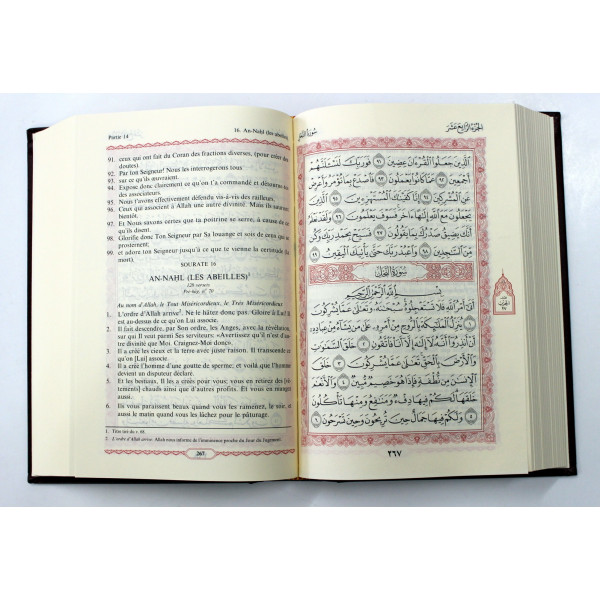 Partie 14
16. An-Nahl (les abeilles)
91. ceux qui ont fait du Coran des fractions diverses, (pour créer des
doutes).
92. Par ton Seigneur! Nous les interrogerons tous
93. sur ce qu'ils œuvraient.
94. Expose donc clairement ce qu'on t'a commandé et détourne-toi
des associateurs.
95. Nous t'avons effectivement défendu vis-à-vis des railleurs.
96. Ceux qui associent à Allah une autre divinité. Mais ils sauront
bientôt.
97. Et Nous savons certes que ta poitrine se serre, à cause de
ce qu'ils disent.
98. Glorifie donc Ton Seigneur par Sa louange et sois de ceux qui se
prosternent;
99. et adore ton Seigneur jusqu'à ce que te vienne la certitude (la
mort).
SOURATE 16
AN-NAHL (LES ABEILLES)¹
128 versets
Pré-hég. n° 70
Au nom d'Allah, le Tout Miséricordieux, le Très Miséricordieux
1. L'ordre d'Allah arrive². Ne le hâtez donc pas. Gloire à Lui! Il
est au-dessus de ce qu'on Lui associe.
2. Il fait descendre, par Son ordre, les Anges, avec la révélation,
sur qui Il veut parmi Ses serviteurs: «Avertissez qu'il n'est d'au-
tre divinité que Moi. Craignez-Moi donc».
3. Il a créé les cieux et la terre avec juste raison. Il transcende ce
qu'on [Lui] associe.
4. Il a créé l'homme d'une goutte de sperme; et voilà que l'homme
devient un disputeur déclaré.
5. Et les bestiaux, Il les a créés pour vous; vous en retirez des [vê-
tements] chauds ainsi que d'autres profits. Et vous en mangez
aussi.
6. Ils vous paraissent beaux quand vous les ramenez, le soir, et
aussi le matin quand vous les lâchez pour le pâturage.
1. Titre tiré du v. 68.
2. L'ordre d'Allah arrive: Allah nous informe de l'imminence proche du Jour du Jugement.
267
سورة النحل
الجزء الرابع عشر
الَّذِينَ جَعَلُوا الْقُرْءَانَ عِضِينَ ٩١ فَوَرَبِّكَ لَنَسْـَٔلَنَّهُمْ
أَجْمَعِينَ ٩٢ عَمَّا كَانُوا يَعْمَلُونَ ٩٣ فَاصْدَعْ بِمَا تُؤْمَرُ وَأَعْرِضْ
عَنِ الْمُشْرِكِينَ ٩٤ إِنَّا كَفَيْنَاكَ الْمُسْتَهْزِءِينَ ٩٥ الَّذِينَ
يَجْعَلُونَ مَعَ اللَّهِ إِلَٰهًا ءَاخَرَ فَسَوْفَ يَعْلَمُونَ ٩٦ وَلَقَدْ نَعْلَمُ
أَنَّكَ يَضِيقُ صَدْرُكَ بِمَا يَقُولُونَ ٩٧ فَسَبِّحْ بِحَمْدِ رَبِّكَ وَكُن
مِّنَ السَّاجِدِينَ ٩٨ وَاعْبُدْ رَبَّكَ حَتَّىٰ يَأْتِيَكَ الْيَقِينُ ٩٩
سورة النحل
بِسْمِ اللَّهِ الرَّحْمَٰنِ الرَّحِيمِ
أَتَىٰ أَمْرُ اللَّهِ فَلَا تَسْتَعْجِلُوهُ سُبْحَانَهُ وَتَعَالَىٰ عَمَّا يُشْرِكُونَ
١ يُنَزِّلُ الْمَلَائِكَةَ بِالرُّوحِ مِنْ أَمْرِهِ عَلَىٰ مَن يَشَاءُ مِنْ عِبَادِهِ
أَنْ أَنذِرُوا أَنَّهُ لَا إِلَٰهَ إِلَّا أَنَا فَاتَّقُونِ ٢ خَلَقَ السَّمَاوَاتِ
وَالْأَرْضَ بِالْحَقِّ تَعَالَىٰ عَمَّا يُشْرِكُونَ ٣ خَلَقَ
الْإِنسَانَ مِن نُّطْفَةٍ فَإِذَا هُوَ خَصِيمٌ مُّبِينٌ ٤ وَالْأَنْعَامَ
خَلَقَهَا لَكُمْ فِيهَا دِفْءٌ وَمَنَافِعُ وَمِنْهَا تَأْكُلُونَ
٥ وَلَكُمْ فِيهَا جَمَالٌ حِينَ تُرِيحُونَ وَحِينَ تَسْرَحُونَ ٦
٢٦٧